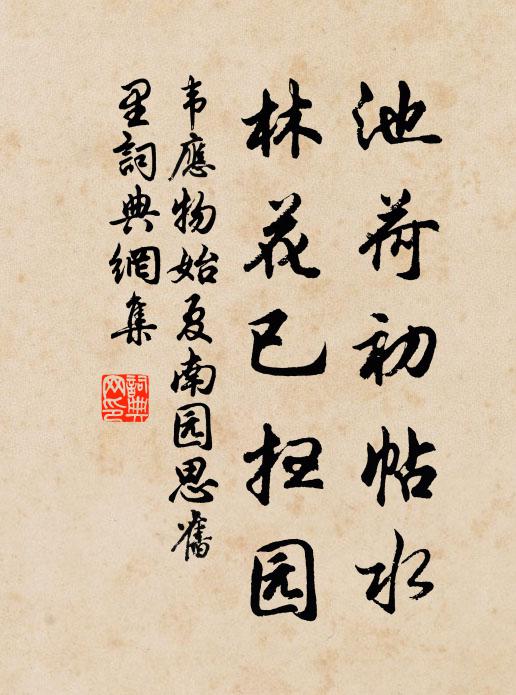 池荷初帖水
林花已扫园
韦應物始夏南园思舊
里詞典網集
詞典网印